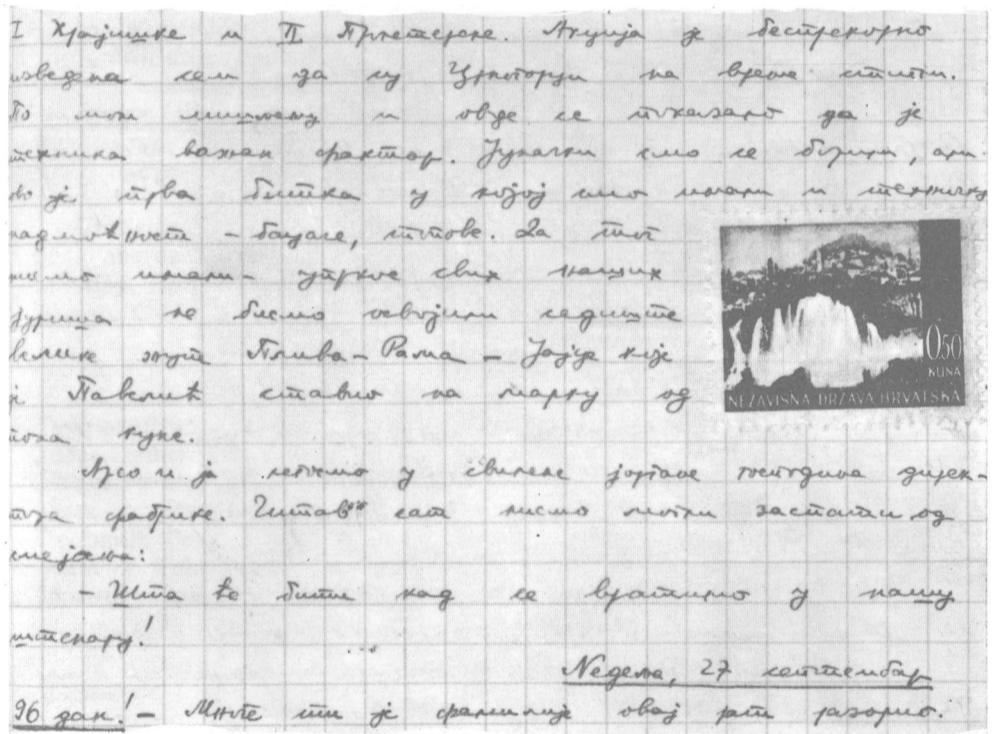 I Крајишке и II Пролетерске. Акција је беспрекорно
изведена сем да су Црногорци на време стигли.
По мом мишљењу и овде се показало да је
техника важан фактор. Јуначки смо се борили, али
ово је прва битка у којој смо имали и техничку
надмоћност – бацаче, топове. Да топ
нисмо имали – упркос свих наших
јуриша не бисмо освојили седиште
велике жупе Плива – Рама – Јајце које
је Павелић ставио на марку од
пола куне.
0,50
KUNA
NEZAVISNA DRŽAVA HRVATSKA
Арсо и ја легосмо у свилене јоргане господина дирек-
тора фабрике. Читав сат нисмо могли заспати од
смејања:
– Шта ће бити кад се вратимо у нашу
штенару!
Недеља, 27 септембар
96 дан! – Многе ти је фамилије овај рат разорио.